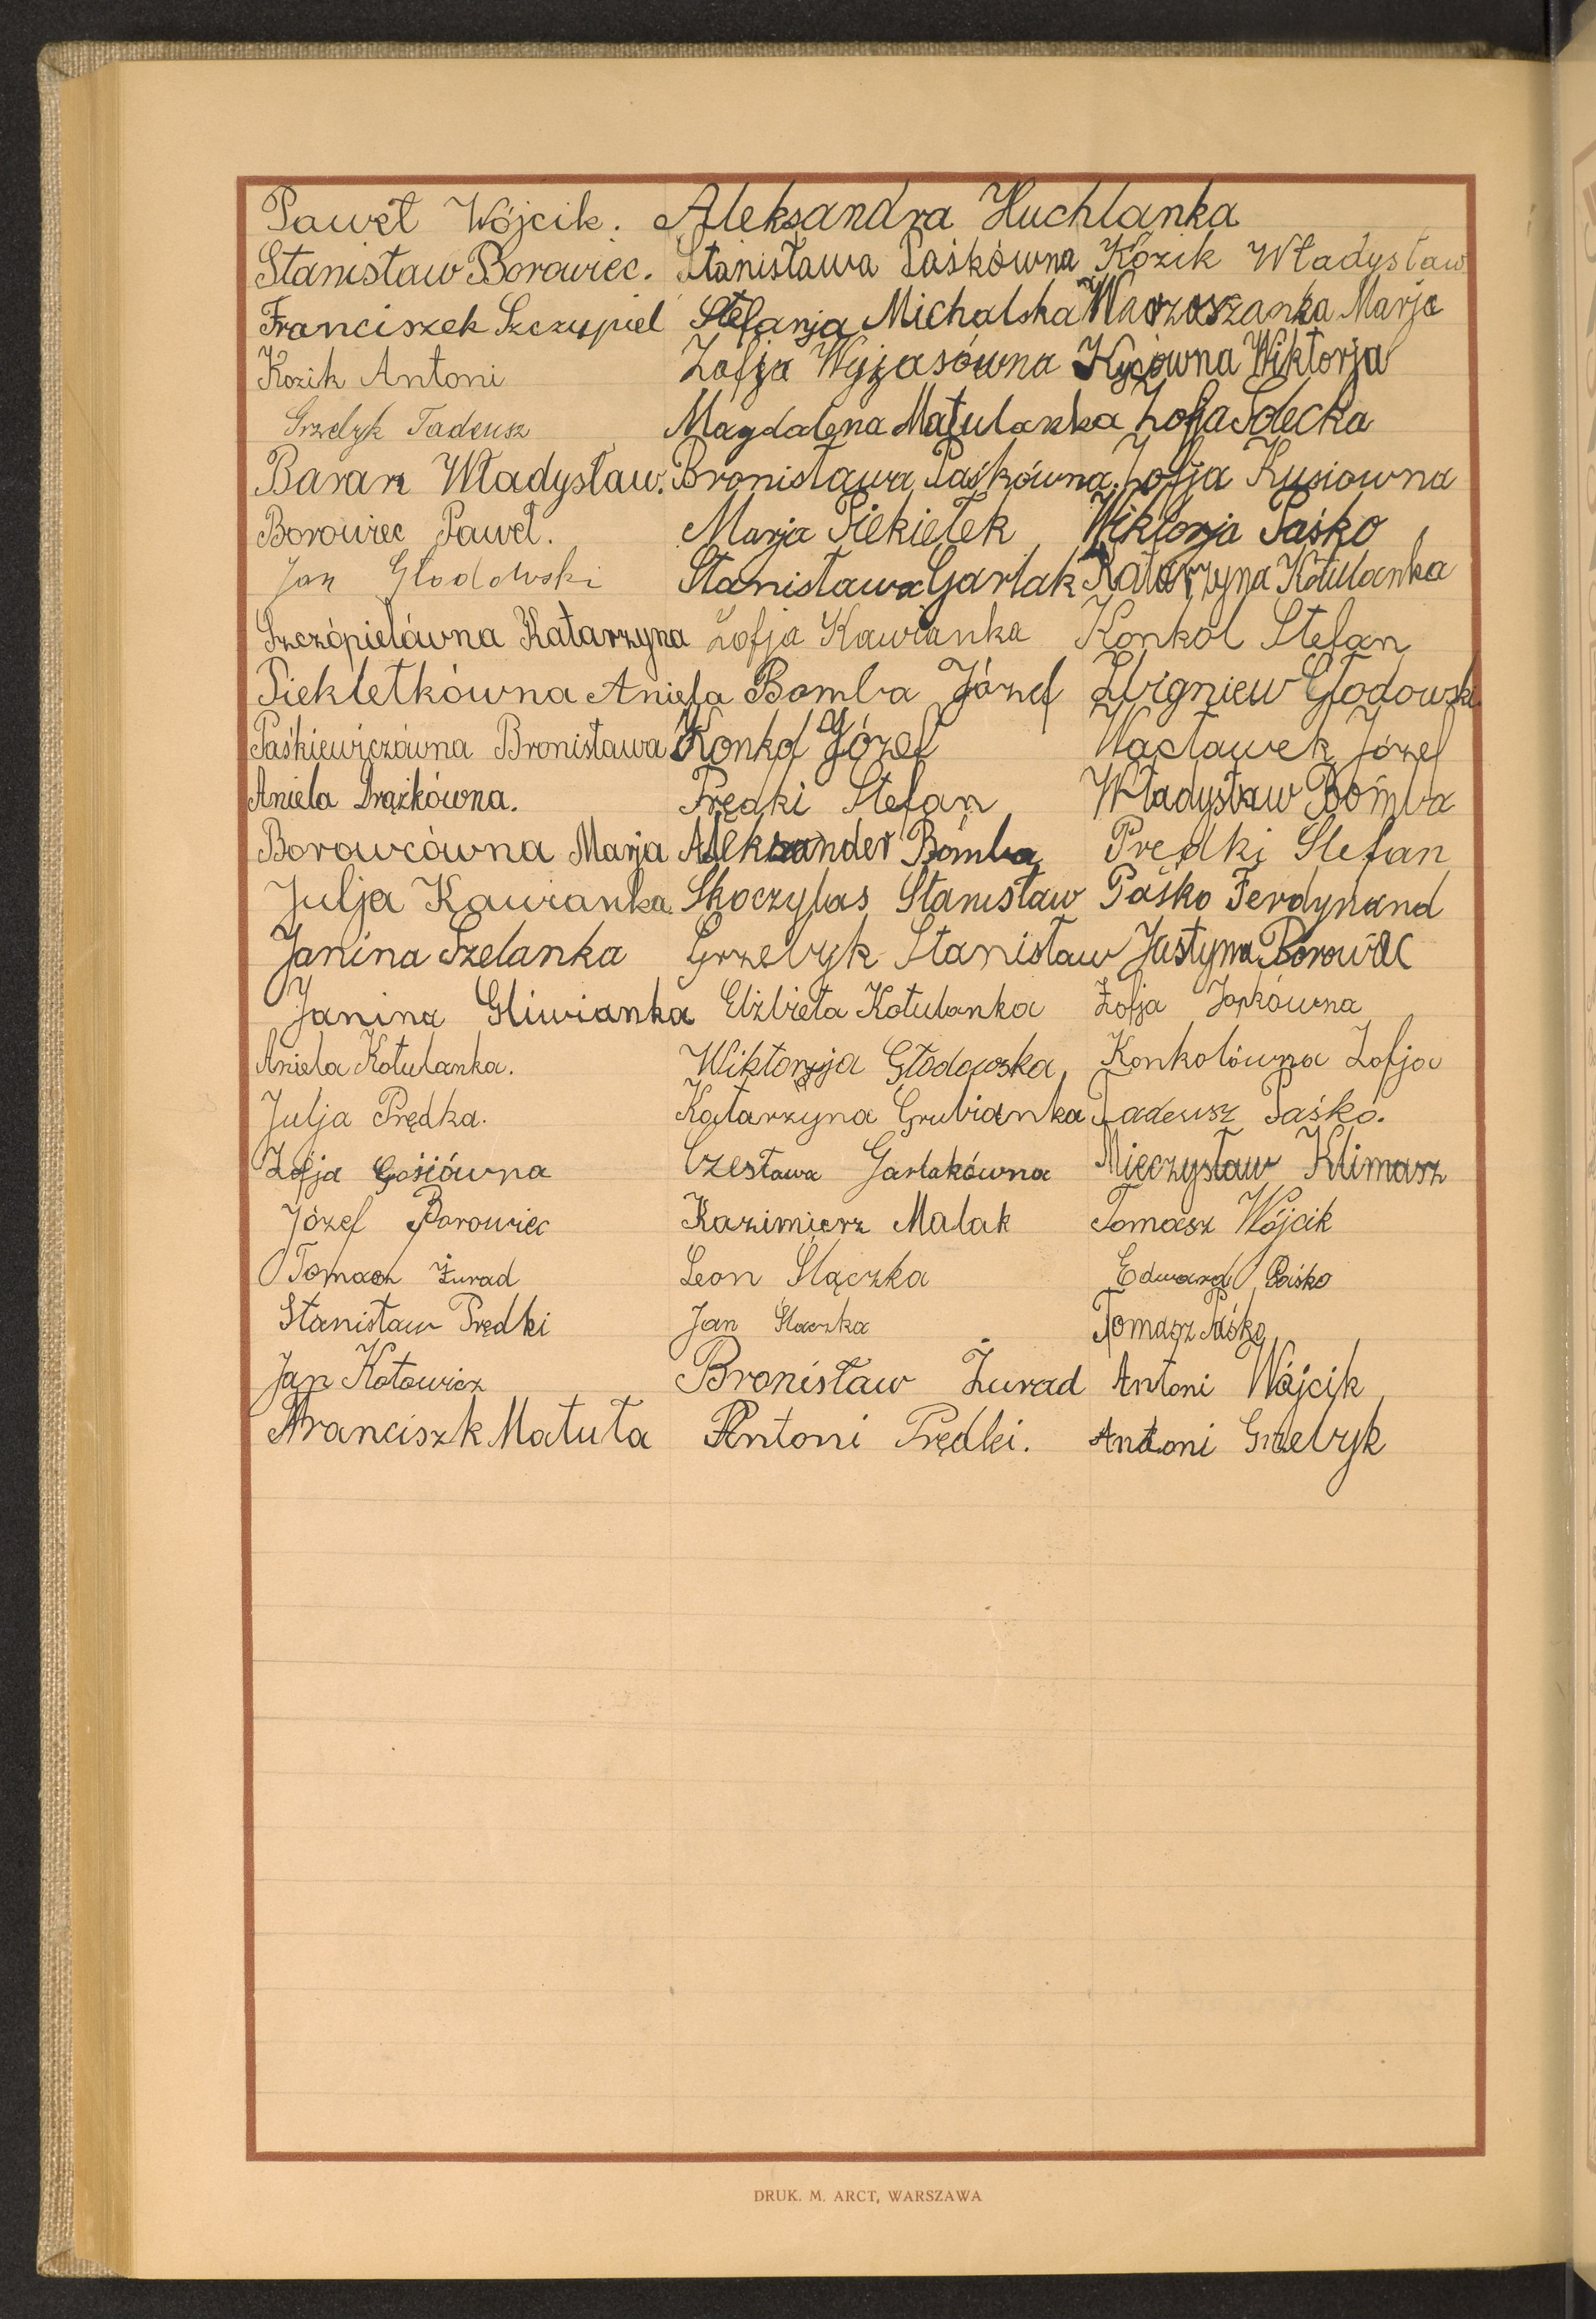 Paweł Wójcik. Aleksandra Huchlanka
Stanisław Borowiec. Stanisława Paśkówna Kozik Władysław
Franciszek Szczupiel Stefanja Michalska Marja
Kozik Antoni Zofja Wyjasówna Wiktorja
Grzebyk Tadeusz Magdalena Matulanka Zofja
Baran Władysław. Bronisława Paśkówna. Zofja Kusiowna
Borowiec Paweł. Marja Piekiełek Wiktorja Paśko
Jan Głodowski Stanisława Garlak Katarzyna Kotulanka
Szczópielówna Katarzyna Zofja Kawianka Konkol Stefan
Piekletkówna Aniela Bomba Józef Zbigniew Głodowski
Paśkiewiczówna Bronisława Konkol Józef Wacławek Józef
Aniela Drążkówna. Prędki Stefan Władysław Bomba
Borowcówna Marja Aleksander Bomba Prędki Stefan
Julja Kawianka. Skoczylas Stanisław Paśko Ferdynand
Janina Szelanka Grzebyk Stanisław Justyna Borowiec
Janina Gliwianka Elżbieta Kotulanka Zofja Japkówna
Aniela Kotulanka. Wiktorja Głodowska Konkolówna Zofja
Julja Prędka. Katarzyna Grubianka Tadeusz Paśko.
Zofja Gosiówna Czesława Garlakówna Mieczysław Klimasz
Józef Borowiec Kazimierz Malak Tomasz Wójcik
Tomasz Żurad Leon Ślączka Edward Paśko
Stanisław Prędki Jan Ślaczka Tomasz Paśko
Jan Kotowicz Bronisław Żurad Antoni Wójcik
Franciszk Matuła Antoni Prędki. Antoni Grzebyk
DRUK. M. ARCT, WARSZAWA